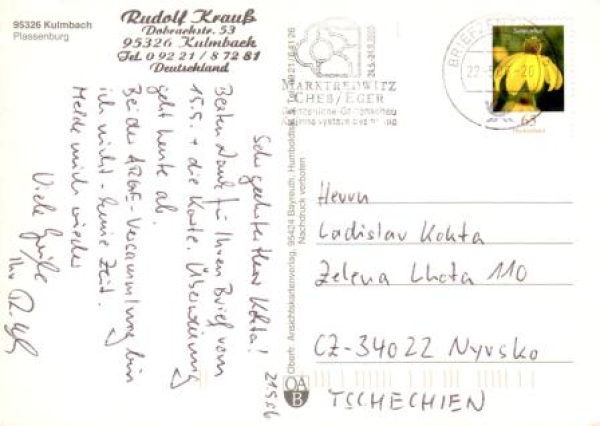 95326 Kulmbach
Plassenburg
Rudolf Krauß
Dobrachstr. 53
95326 Kulmbach
Tel. 0 92 21 / 8 72 81
Deutschland
Sehr geehrter Herr Kokta!
Besten Dank für Ihren Brief vom
15.5. + die Karte. Überweisung
geht heute ab.
Bei der ARGE-Versammlung bin
ich nicht - keine Zeit.
Melde mich wieder
Viele Grüße
Ihr
21.5.06
Oberfr. Ansichtskartenverlag, 95424 Bayreuth, Humboldtstr.
Nachdruck verboten
OA
B
MARKTREDWITZ
CHEB/EGER
24.5.-24.9.2006
BRIEFZENTRUM
65
Herrn
Ladislav Kokta
Zelena Lhota 110
CZ-34022 Nyrsko
TSCHECHIEN